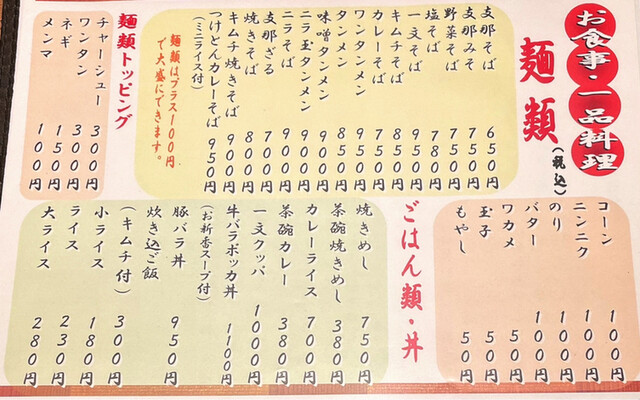 お食事・一品料理
麺類(税込)
支那そば 650円
支那みそ 750円
野菜そば 750円
塩そば 780円
一文そば 950円
キムチそば 850円
カレーそば 950円
ワンタンメン 950円
タンメン 850円
味噌タンメン 950円
ニラ玉タンメン 900円
ニラそば 900円
支那ざる 700円
焼きそば 800円
キムチ焼きそば 900円
つけどんカレーそば 950円
(ミニライス付)
麺類はプラス100円
で大盛にできます。
麺類トッピング
チャーシュー 300円
ワンタン 300円
ネギ 150円
メンマ 100円
コーン 100円
ニンニク 100円
のり 100円
バター 100円
ワカメ 50円
玉子 50円
もやし 50円
ごはん類・丼
焼きめし 750円
茶碗焼きめし 380円
カレーライス 700円
茶碗カレー 380円
一文クッパ 1000円
牛バラポッカ丼 1100円
(お新香スープ付)
豚バラ丼 950円
炊き込ご飯
(キムチ付) 300円
小ライス 180円
ライス 230円
大ライス 280円